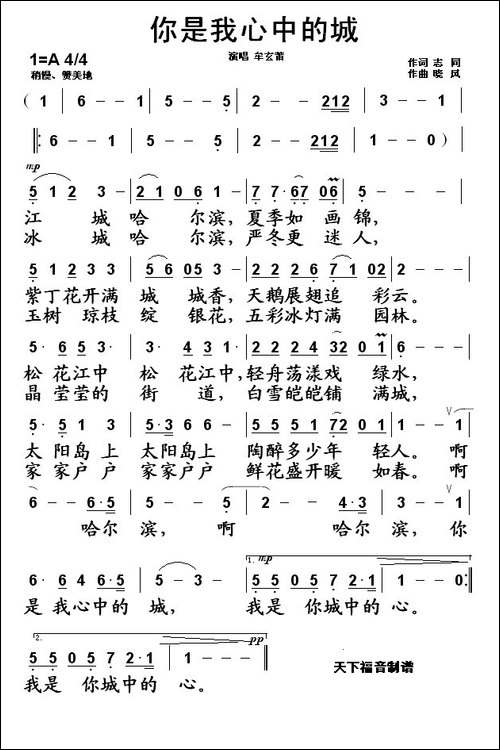 你是我心中的城
1=A 4/4
演唱 牟玄莆
作词 志 同
稍慢、赞美地
作曲 晓 风
( 1 6 - - 1 | 5 - - 5 5 | 2 - - 212 | 3 - - 1 |
6 - - 1 | 5 - - 5 5 | 2 - - 212 | 1 - - 0 )
mp
5 1 2 3 - | 2 1 0 6 1 - | 7 7 · 67 06 | 5 - - - |
江 城 哈 尔 滨, 夏 季 如 画 锦,
冰 城 哈 尔 滨, 严 冬 更 迷 人,
5 1 2 3 3 | 5 3 2 3 - | 2 2 2 6 7 1 02 | 2 - - - |
紫 丁 花 开 满 城 城 香, 天 鹅 展 翅 追 彩 云。
玉 树 琼 枝 绽 银 花, 五 彩 冰 灯 满 园 林。
5 · 6 5 3 | 5 · 6 5 3 | 2 2 2 4 3 02 1 | 6 - - - |
松 花 江 中 松 花 江 中, 轻 舟 荡 漾 戏 绿 水,
晶 莹 莹 的 街 道, 白 雪 皑 皑 铺 满 城,
5 · 3 6 5 | 5 · 3 6 6 | 5 5 5 1 7 · 02 | 1 - - 1 |
太 阳 岛 上 太 阳 岛 上 陶 醉 多 少 年 轻 人。 啊
家 家 户 户 家 家 户 户 鲜 花 盛 开 暖 如 春。 啊
6 - - 6·5 | 5 - - 5 | 2 - - 4·3 | 3 - - 1 |
哈 尔 滨, 啊 哈 尔 滨, 你
mp
1.
6 · 6 4 6·5 | 5 - 3 - | 5 5 0 5 7 2·1 | 1 - - 0 :
是 我 心 中 的 城, 我 是 你 城 中 的 心。
2.
pp
5 5 0 5 7 2·1 | 1 - - - |
我 是 你 城 中 的 心。
天下福音制谱